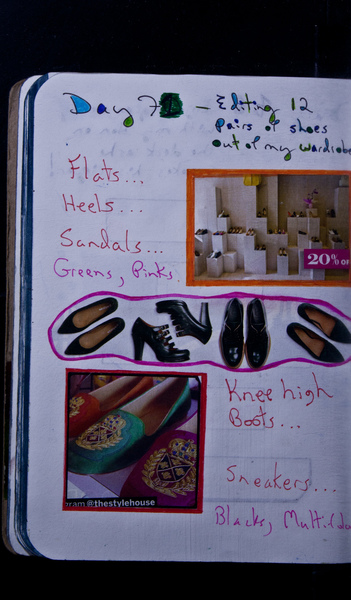 Day 7 - Editing 12
Pairs of shoes
out of my wardrobe
Flats...
Heels...
Sandals...
Greens, Pinks
20% OF
Knee high
Boots...
gram @thestylehouse
Sneakers...
Blacks,